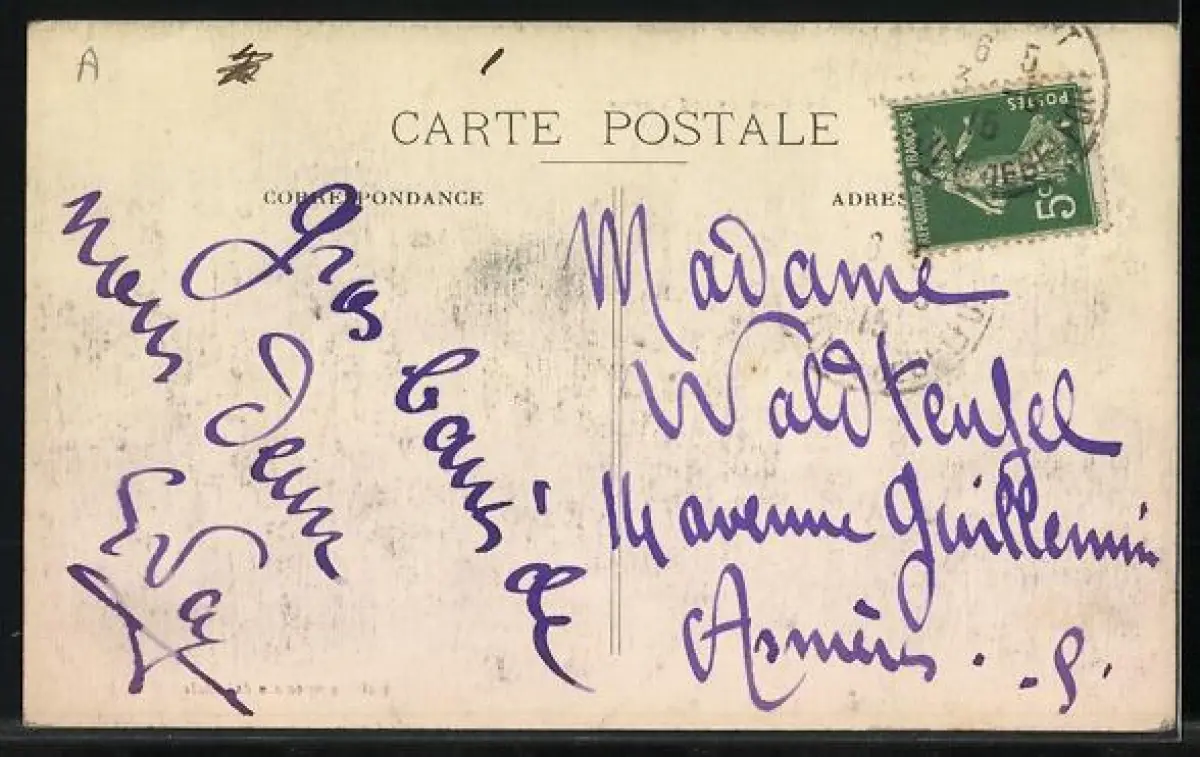 A
CARTE POSTALE
CORRESPONDANCE
ADRES
POSTES
REPUBLIQUE FRANÇAISE
5c
Gros baisers de
nous deux
Eva
Madame
Waldteufel
avenue Guillemin
Asnières. .S.